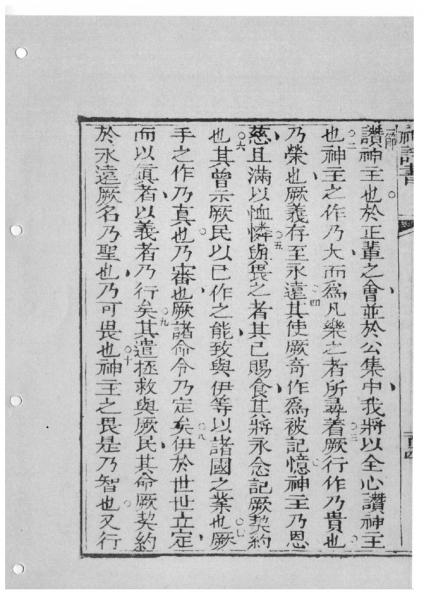 讚神主也於正輩之會並於公集中我將以全心讚神主
也神主之作乃大而爲凡樂之者所尋着厥行作乃貴也
乃榮也厥義存至永遠其使厥奇作爲被記憶神主乃恩
慈且滿以恤憐與畏之者其已賜食其將永念記厥契約
也其曾示厥民以己作之能致與伊等以諸國之業也厥
手之作乃真也乃審也厥諸命令乃定矣伊於世世立定
而以眞者以義者乃行矣其遣拯救與厥民其命厥契約
於永遠厥名乃聖也乃可畏也神主之畏是乃智也又行